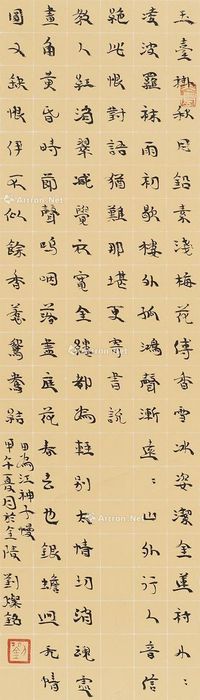 玉臺掛秋月鉛素淺梅花傅香雪冰姿潔金蓮襯小〻
凌波羅襪雨初歇樓外孤鴻聲漸遠〻山外行人音信
絕此恨對語猶難那堪更寄書說
教人紅消翠減覺衣寬金縷都為輕別太情切消魂處
畫角黃昏時節聲嗚咽落盡庭花春去也銀蟾迥無情
圓又缺恨伊不似餘香惹鴛鴦結
田為江神子慢
甲午夏月於金陵 劉燦銘
Artron.Net